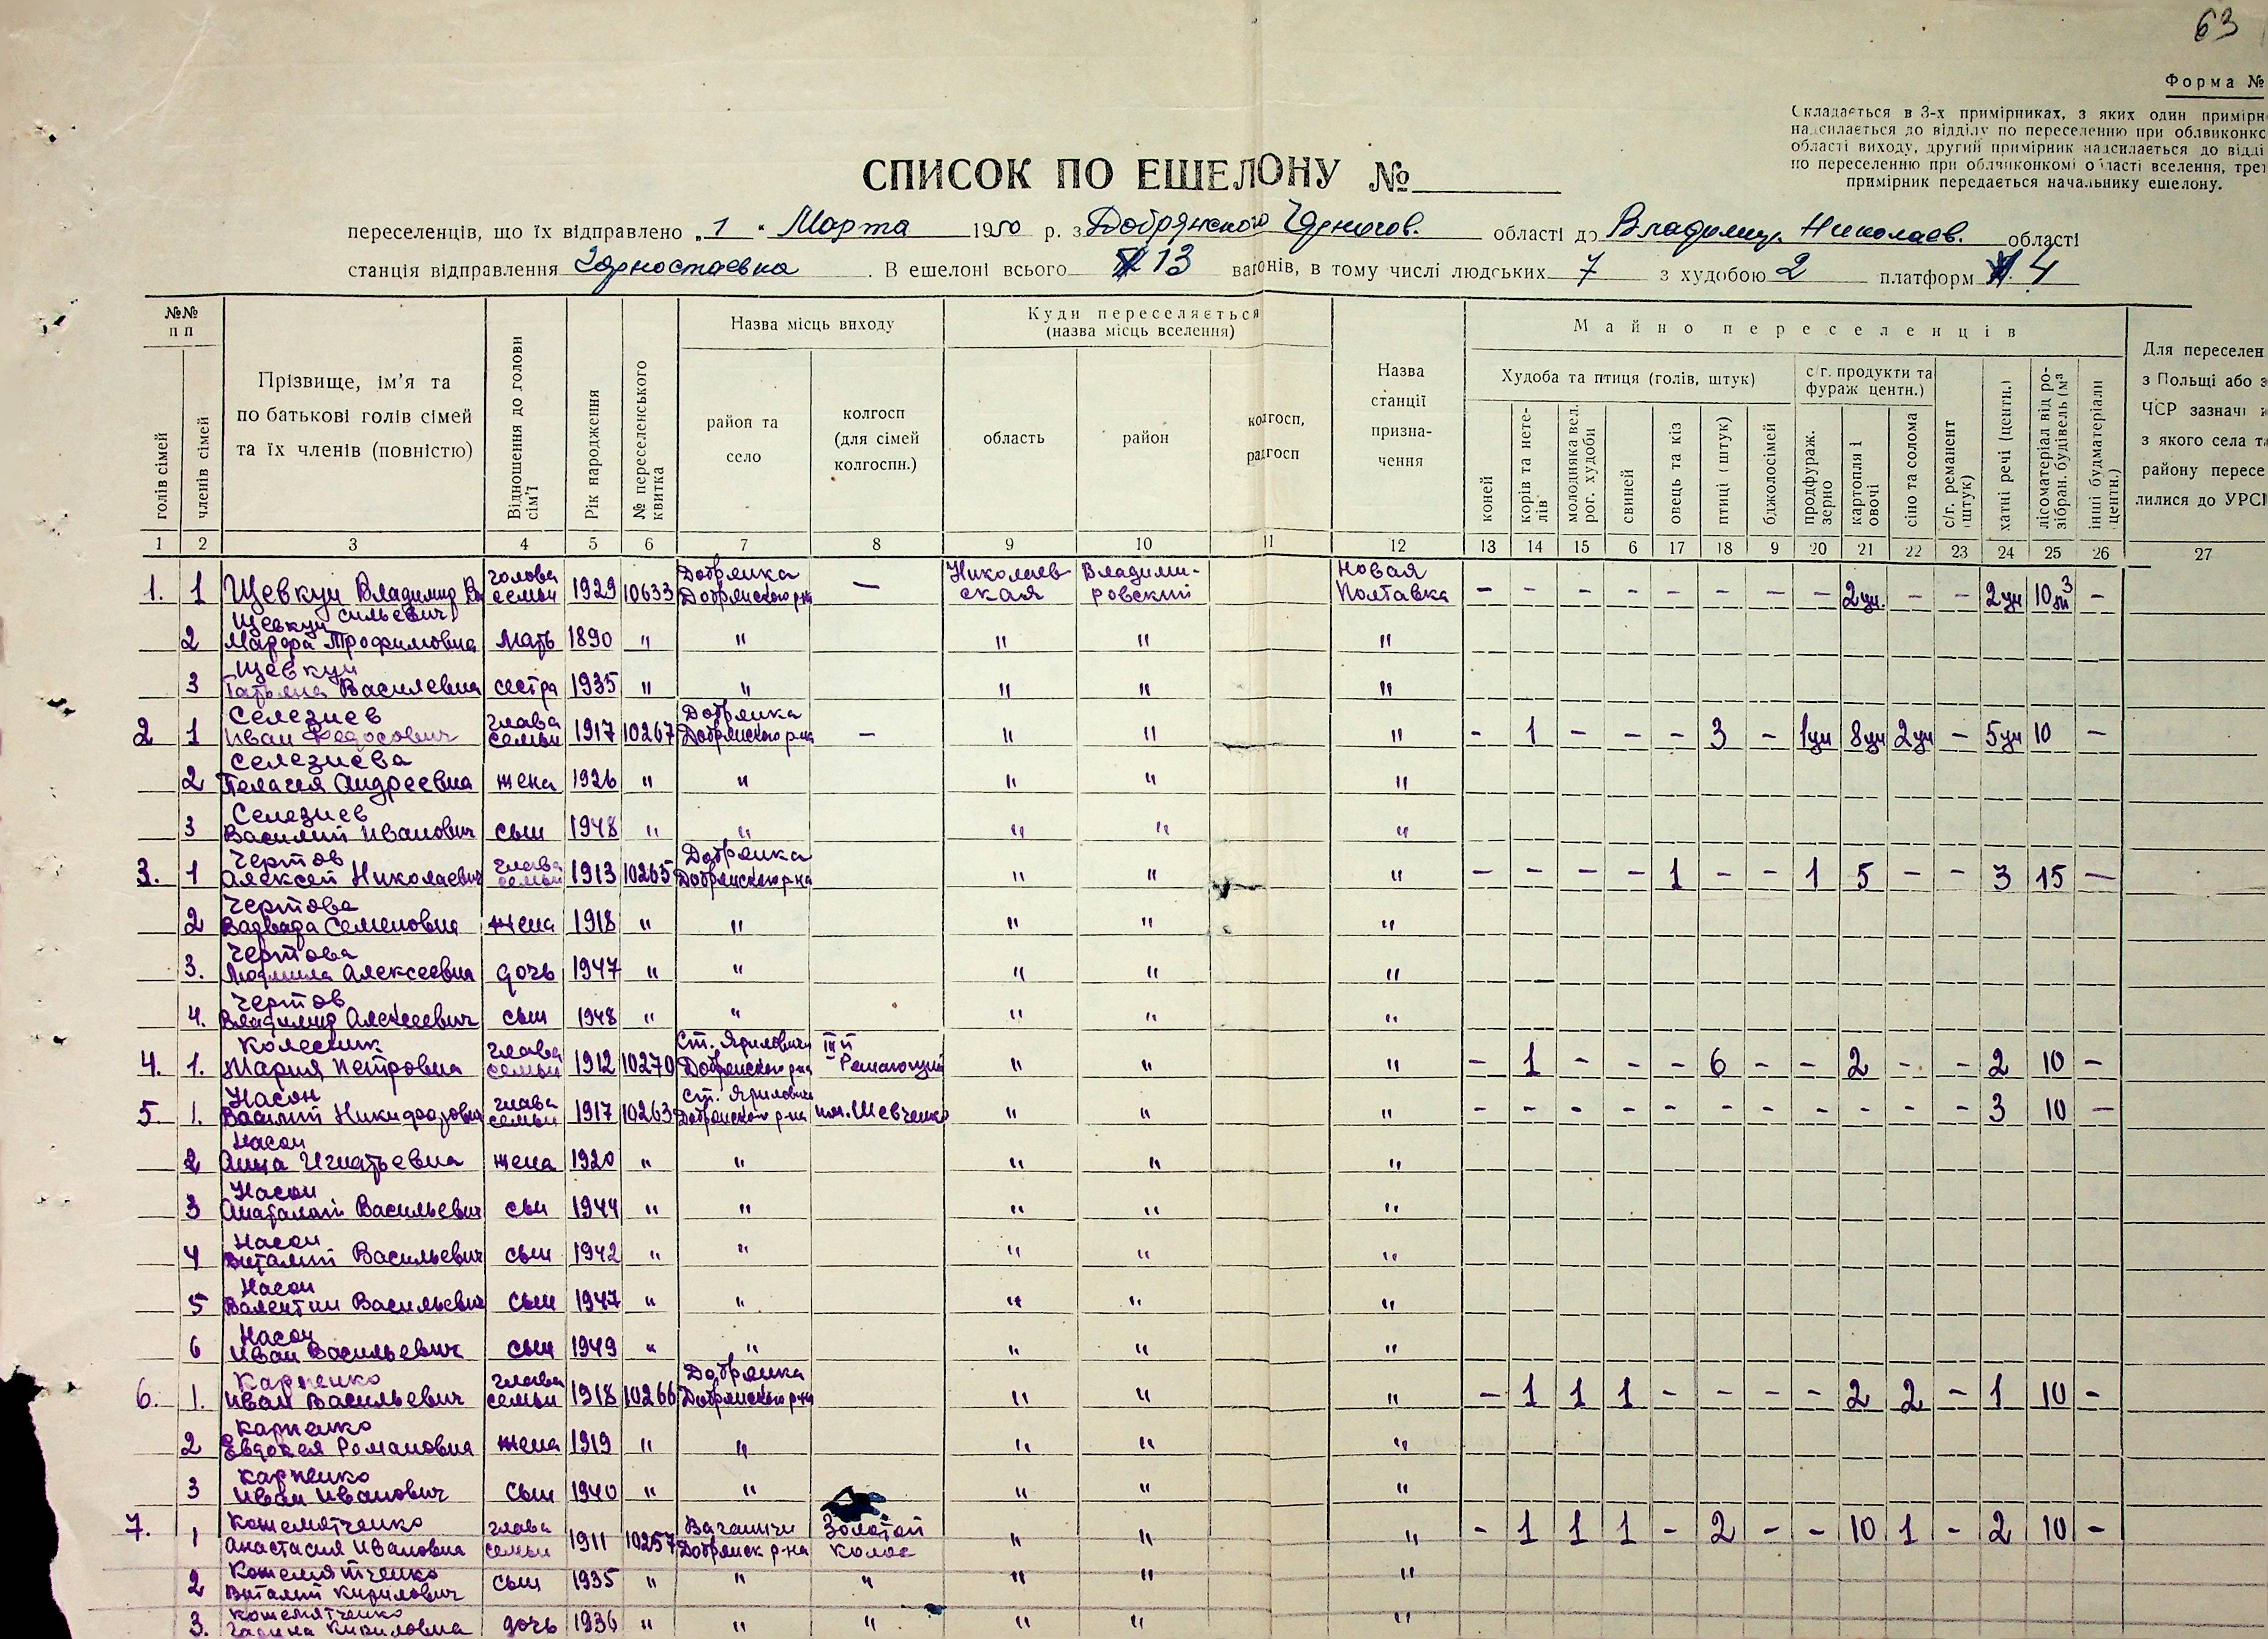 63
Форма №
Складається в 3-х примірниках, з яких один примірн
надсилається до відділу по переселенню при облвиконко
області виходу, другий примірник надсилається до відді
по переселенню при облвиконкомі області вселення, трет
примірник передається начальнику ешелону.
СПИСОК ПО ЕШЕЛОНУ №
переселенців, що їх відправлено „1“ Марта 1950 р. з Добрянского Чернігов. області до Владимир. Николаев. області
станція відправлення Горностаевка. В ешелоні всього 13 вагонів, в тому числі людських 7 з худобою 2 платформ 4
№№ п п
голів сімей
членів сімей
Прізвище, ім'я та по батькові голів сімей та їх членів (повністю)
Відношення до голови сім'ї
Рік народження
№ переселенського квитка
Назва місць виходу
район та село
колгосп (для сімей колгоспн.)
Куди переселяється (назва місць вселення)
область
район
колгосп, радгосп
Назва станції призначення
Майно переселенців
Худоба та птиця (голів, штук)
коней
корів та нетелів
молодняка вел. рог. худоби
свиней
овець та кіз
птиці (штук)
бджолосімей
с/г. продукти та фураж центн.)
продфураж. зерно
картопля і овочі
сіно та солома
с/г. реманент (штук)
хатні речі (центн.)
лісоматеріал від розібран. будівель (м³
інші будматеріали центн.)
Для переселен
з Польщі або з
ЧСР зазначі
з якого села т
району пересе
лилися до УРСР
1 2 3 4 5 6 7 8 9 10 11 12 13 14 15 6 17 18 9 20 21 22 23 24 25 26 27
1. 1 Щевкун Владимир Васильевич голова семьи 1929 10633 Добрянка Добрянского р-на — Николаевская Владимировский Новая Полтавка - - - - - - - - 2цн. - - 2цн 10м3 -
2 Щевкун Марфа Трофимовна мать 1890 " " " " "
3 Щевкун Татьяна Василевна сестра 1935 " " " " "
2 1 Селезнев Иван Федосович глава семьи 1917 10267 Добрянка Добрянского р-на — " " " - 1 - - - 3 - 1цн 8цн 2цн - 5цн 10 -
2 Селезнева Пелагея Андреевна жена 1926 " " " " "
3 Селезнев Василий Иванович сын 1948 " " " " "
3. 1 Чертов Алексей Николаевич глава семьи 1913 10265 Добрянка Добрянского р-на " " " - - - - 1 - - 1 5 - - 3 15 —
2 Чертова Варвара Семеновна жена 1918 " " " " "
3. Чертова Людмила Алексеевна дочь 1947 " " " " "
4. Чертов Владимир Алексеевич сын 1948 " " " " "
4. 1. Колесник Мария Петровна глава семьи 1912 10270 Ст. Яриловичи Добрянского р-на IIIй Решающий " " " - 1 - - - 6 - - 2 - - 2 10 -
5 1. Насон Василий Никифорович глава семьи 1917 10263 Ст. Яриловичи Добрянского р-на им. Шевченко " " " - - - - - - - - - - - 3 10 —
2 Насон Анна Игнатьевна жена 1920 " " " " "
3 Насон Анатолий Васильевич сын 1944 " " " " "
4 Насон Виталий Васильевич сын 1942 " " " " "
5 Насон Валентин Васильевич сын 1947 " " " " "
6 Насон Иван Васильевич сын 1949 " " " " "
6. 1. Карпенко Иван Васильевич глава семьи 1918 10266 Добрянка Добрянского р-на " " " - 1 1 1 - - - - 2 2 - 1 10 -
2 Карпенко Евдокея Романовна жена 1919 " " " " "
3 Карпенко Иван Иванович сын 1940 " " " " "
7. 1 Кожемятченко Анастасия Ивановна глава семьи 1911 10257 Добрянск р-на Золотой колос " " " - 1 1 1 - 2 - - 10 1 - 2 10 -
2 Кожемятченко Виталий Кирилович сын 1935 " " " " " "
3. Кожемятченко Галина Кириловна дочь 1936 " " " " " "